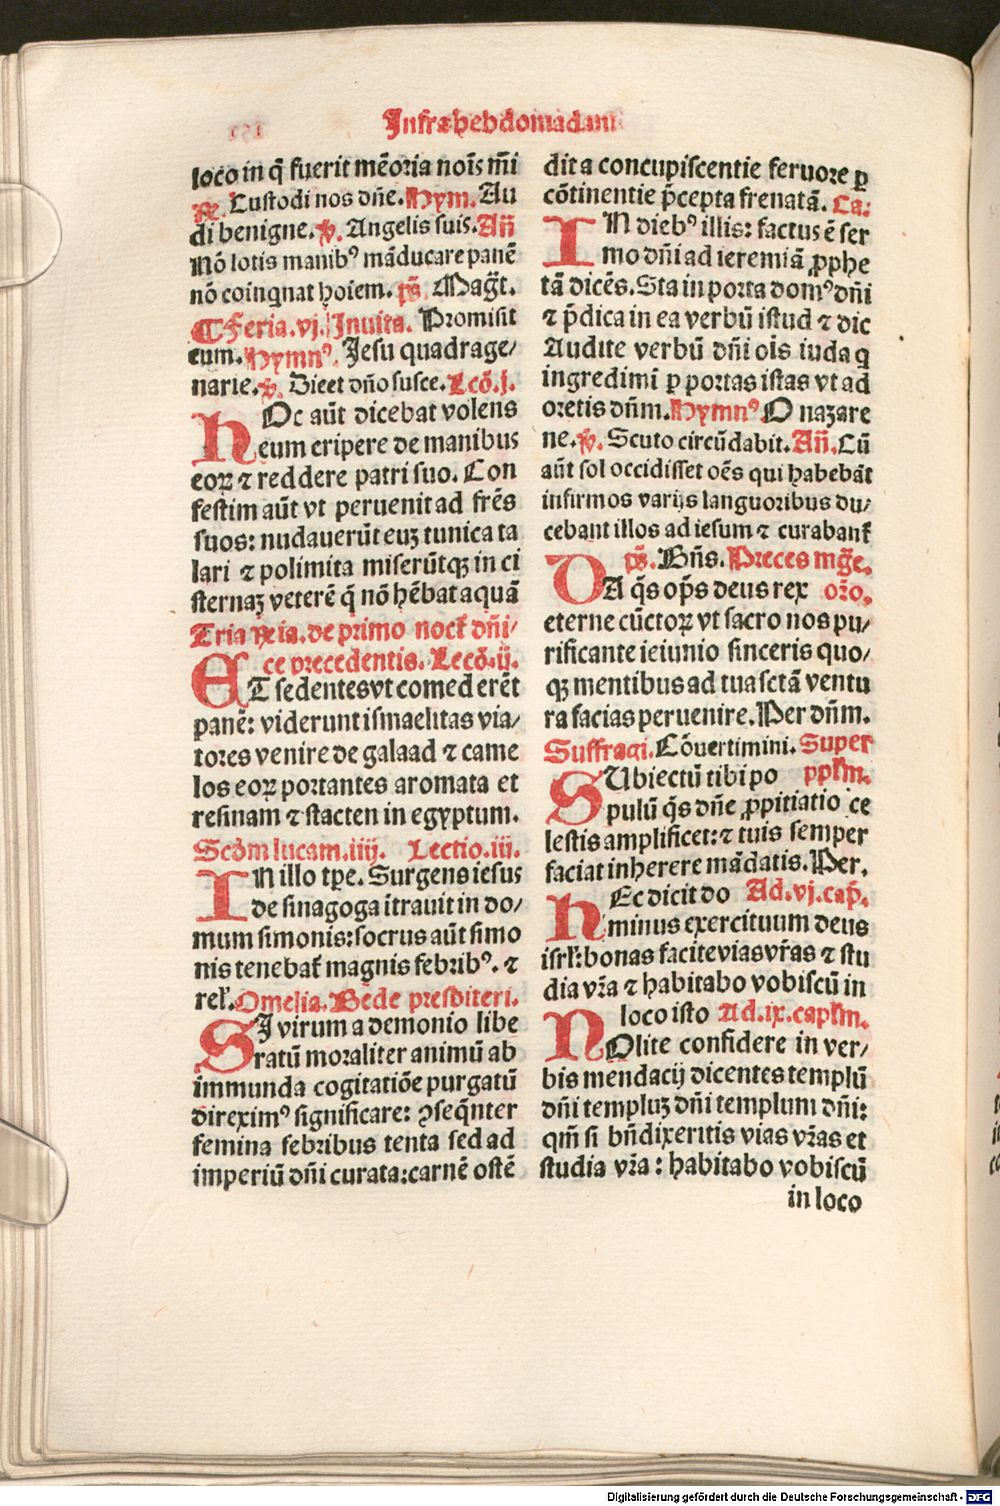 Infra hebdomadam
loco in q̄ fuerit mēoria noīs m̄i
℟. Custodi nos dn̄e. Hym. Au
di benigne. ℣. Angelis suis. Añ
Nō lotis manibꝰ māducare panē
nō coinqnat hoīem. p̄s Mag̃t.
¶ Feria.vj. Inuita. Promisit
eum. Hymnꝰ. Jesu quadrage/
narie. ℣. Dicet dño susce. Lcō.j.
HOc aūt dicebat volens
eum eripere de manibus
eoꝝ ⁊ reddere patri suo. Con
festim aūt vt peruenit ad frēs
suos: nudauerūt euꝫ tunica ta
lari ⁊ polimita miserūtqꝫ in ci
sternaꝫ veterē q̄ nō hēbat aquā
Tria ℟ia. de primo noct̄ dn̄i/
ce precedentis. Lecō.ij.
ET sedentes vt comederēt
panē: viderunt ismaelitas via/
tores venire de galaad ⁊ came
los eoꝝ portantes aromata et
resinam ⁊ stacten in egyptum.
Scd̄m lucam.iiij. Lectio.iij.
IN illo tꝑe. Surgens iesus
de sinagoga ītrauit in do/
mum simonis: socrus aūt simo
nis tenebat̄ magnis febribꝰ. ⁊
rel̄. Omelia. Bede presbiteri.
SI virum a demonio libe
ratū moraliter animū ab
immunda cogitatiōe purgatū
direximꝰ significare: ꝯseq̄nter
femina febribus tenta sed ad
imperiū dn̄i curata: carnē ostē
dit a concupiscentie feruore ꝑ
cōtinentie p̄cepta frenatā. Ca:
IN diebꝰ illis: factus ē ser
mo dn̄i ad ieremiā ꝓphe
tā dicēs. Sta in porta domꝰ dn̄i
⁊ p̄dica in ea verbū istud ⁊ dic
Audite verbū dn̄i oīs iuda q
ingredimī ꝑ portas istas vt ad
oretis dn̄m. Hymnꝰ O nazare
ne. ℣. Scuto circūdabit. Añ. Cū
aūt sol occidisset oēs qui habebāt
infirmos varijs languoribus du/
cebant illos ad iesum ⁊ curabant̄
p̄s. Bn̄s. Preces mg̃e.
DA q̄s op̄s deus rex or̄o.
eterne cūctoꝝ vt sacro nos pu/
rificante ieiunio sinceris quo/
qꝫ mentibus ad tua sctā ventu
ra facias peruenire. Per dn̄m.
Suffragi. Cōuertimini. Super
SUbiectū tibi po ppl̄m.
pulū q̄s dn̄e ꝓpitiatio ce
lestis amplificet: ⁊ tuis semper
faciat inherere mādatis. Per.
HEc dicit do Ad.vj.cap̄.
minus exercituum deus
isrl̄: bonas facite vias vr̄as ⁊ stu
dia vr̄a ⁊ habitabo vobiscū in
loco isto Ad.ix.capl̄m.
NOlite confidere in ver/
bis mendacij dicentes templū
dn̄i templuꝫ dn̄i templum dn̄i:
qm̄ si bn̄dixeritis vias vr̄as et
studia vr̄a: habitabo vobiscū
in loco
Digitalisierung gefördert durch die Deutsche Forschungsgemeinschaft - DFG